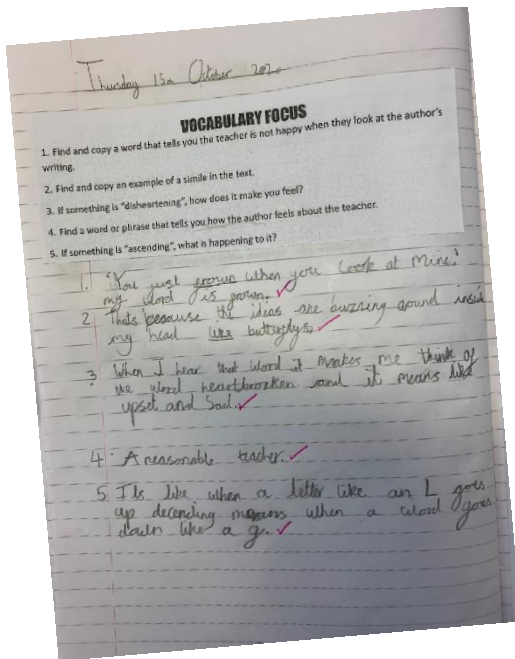 Thursday 15th October 2020
VOCABULARY FOCUS
1. Find and copy a word that tells you the teacher is not happy when they look at the author's
writing.
2. Find and copy an example of a simile in the text.
3. If something is "disheartening", how does it make you feel?
4. Find a word or phrase that tells you how the author feels about the teacher.
5. If something is "ascending", what is happening to it?
1. 'You just grown when you look at mine.'
my word is grown.
2. Thats because the ideas are buzzing around inside
my head like butterflys.
3 When I hear that word it makes me think of
the word heartbroken and it means like
upset and sad.
4. A reasonable teacher.
5 Its like when a letter like an L goes
up decending means when a word goes
down like a g.